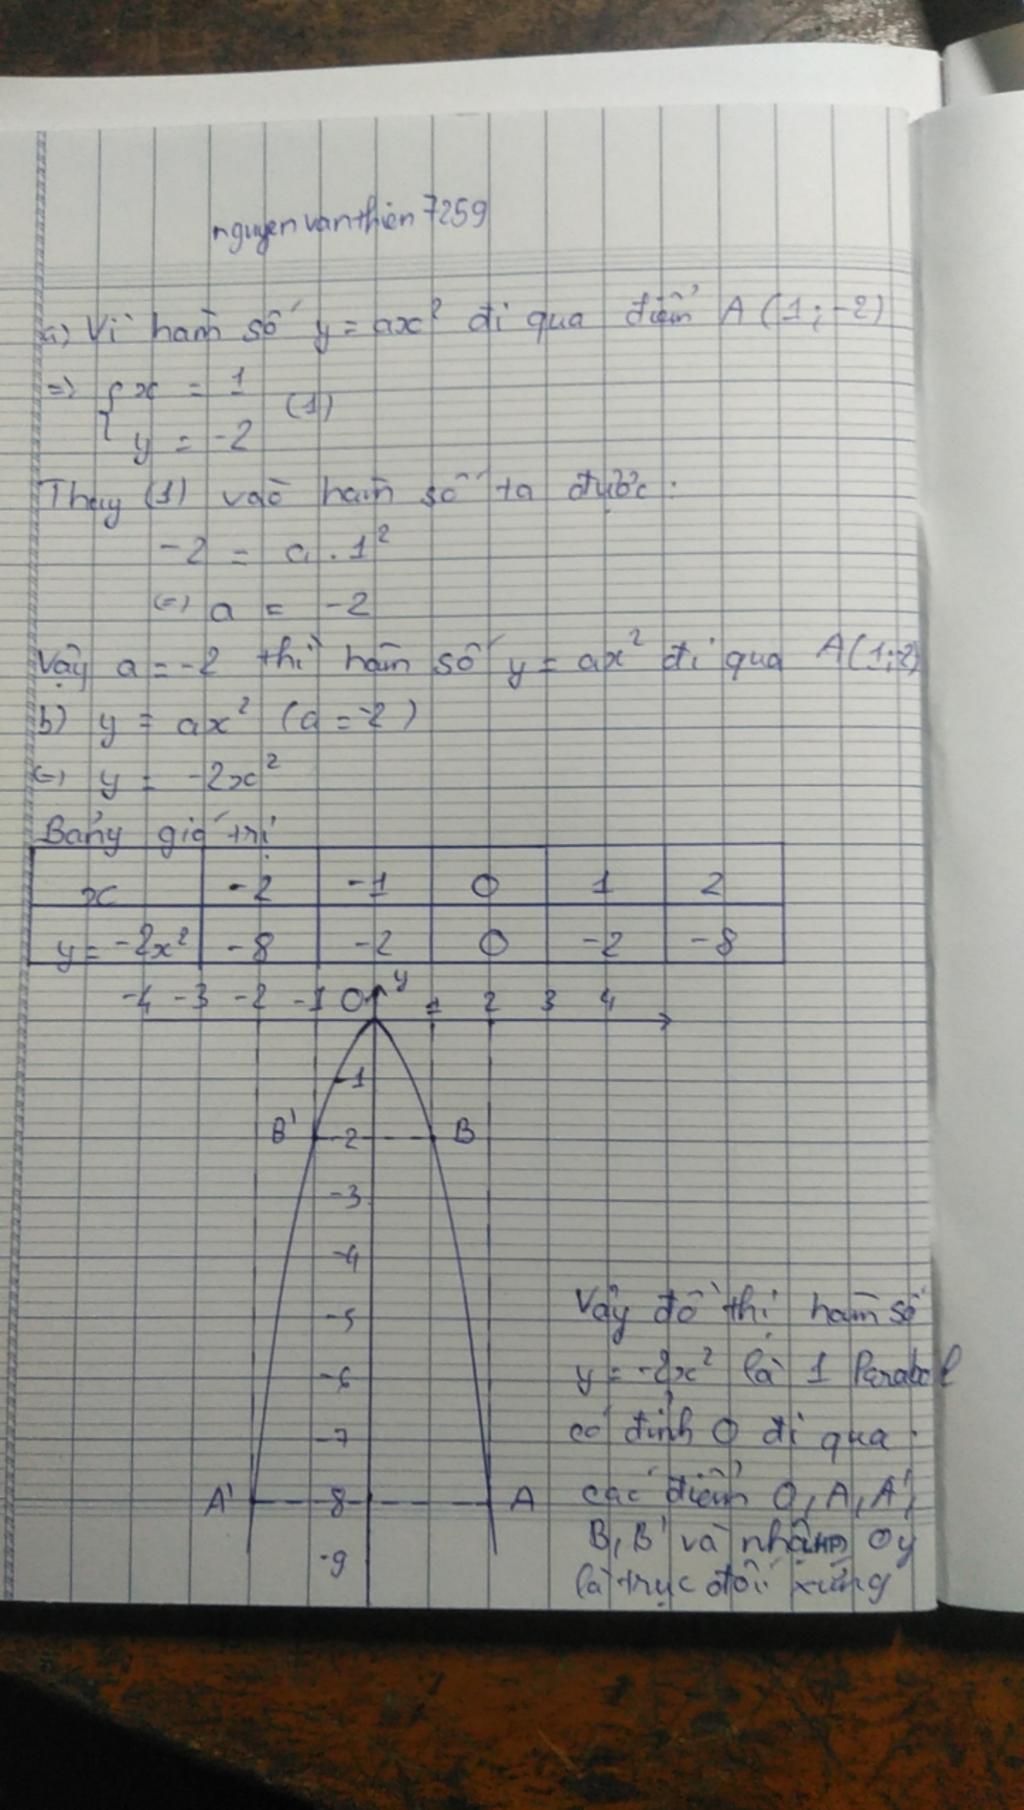 nguyenvanthien7259
a) Vì hàm số y = ax² đi qua điểm A (1;-2)
=> { x = 1
y = -2 (1)
Thay (1) vào hàm số ta được:
-2 = a . 1²
<=> a = -2
Vậy a = -2 thì hàm số y = ax² đi qua A(1;-2)
b) y = ax² (a = -2)
<=> y = -2x²
Bảng giá trị
x -2 -1 0 1 2
y = -2x² -8 -2 0 -2 -8
y
-4 -3 -2 -1 O 1 2 3 4
-1
B' -2 B
-3
-4
-5
-6
-7
A' -8 A
-9
Vậy đồ thị hàm số
y = -2x² là 1 Parabol
có đỉnh O đi qua
các điểm O, A, A',
B, B' và nhận Oy
là trục đối xứng